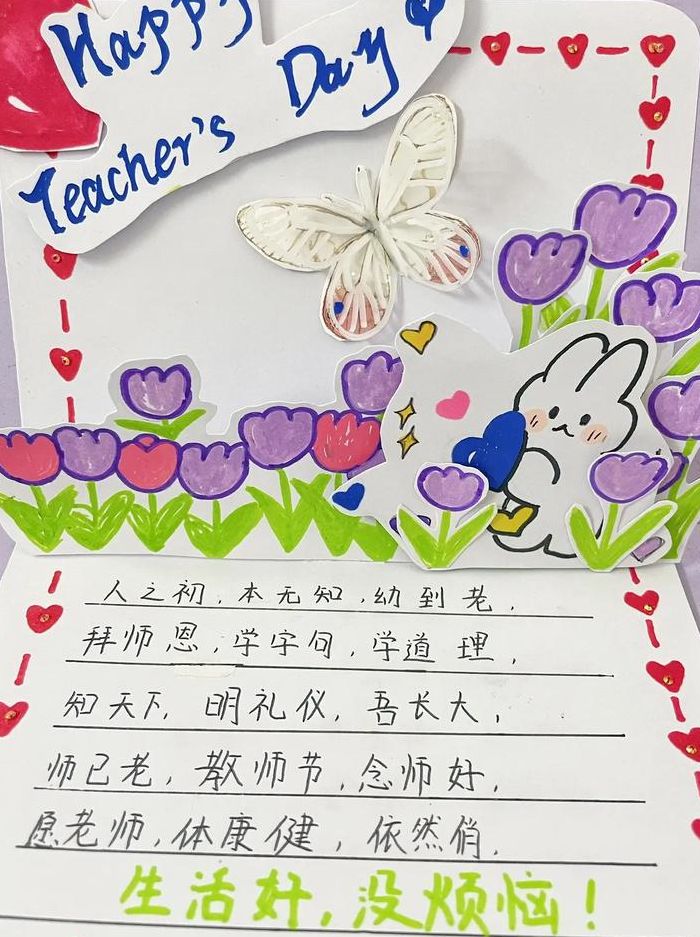 Happy
Teacher's Day
人之初，本无知，幼到老，
拜师恩，学字句，学道理，
知天下，明礼仪，吾长大，
师已老，教师节，念师好，
愿老师，体康健，依然俏，
生活好，没烦恼！